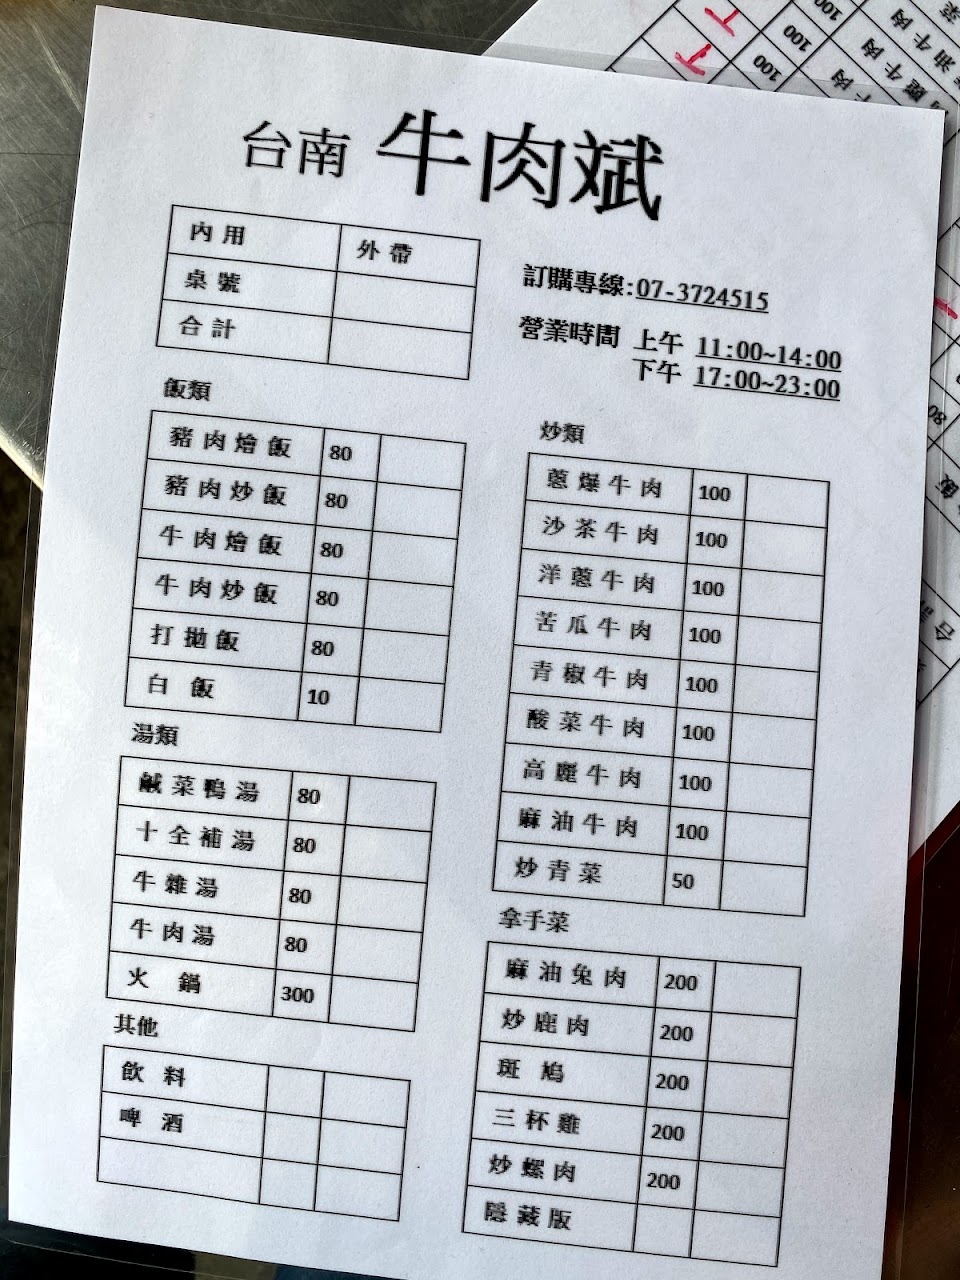 台南 牛肉斌
內用 外帶
桌號
合計
訂購專線:07-3724515
營業時間 上午 11:00~14:00
下午 17:00~23:00
飯類
豬肉燴飯 80
豬肉炒飯 80
牛肉燴飯 80
牛肉炒飯 80
打拋飯 80
白飯 10
湯類
鹹菜鴨湯 80
十全補湯 80
牛雜湯 80
牛肉湯 80
火鍋 300
其他
飲料
啤酒
炒類
蔥爆牛肉 100
沙茶牛肉 100
洋蔥牛肉 100
苦瓜牛肉 100
青椒牛肉 100
酸菜牛肉 100
高麗牛肉 100
麻油牛肉 100
炒青菜 50
拿手菜
麻油兔肉 200
炒鹿肉 200
斑鳩 200
三杯雞 200
炒螺肉 200
隱藏版
100
100
100
牛肉
油牛肉
麗牛肉
80
飯
合計